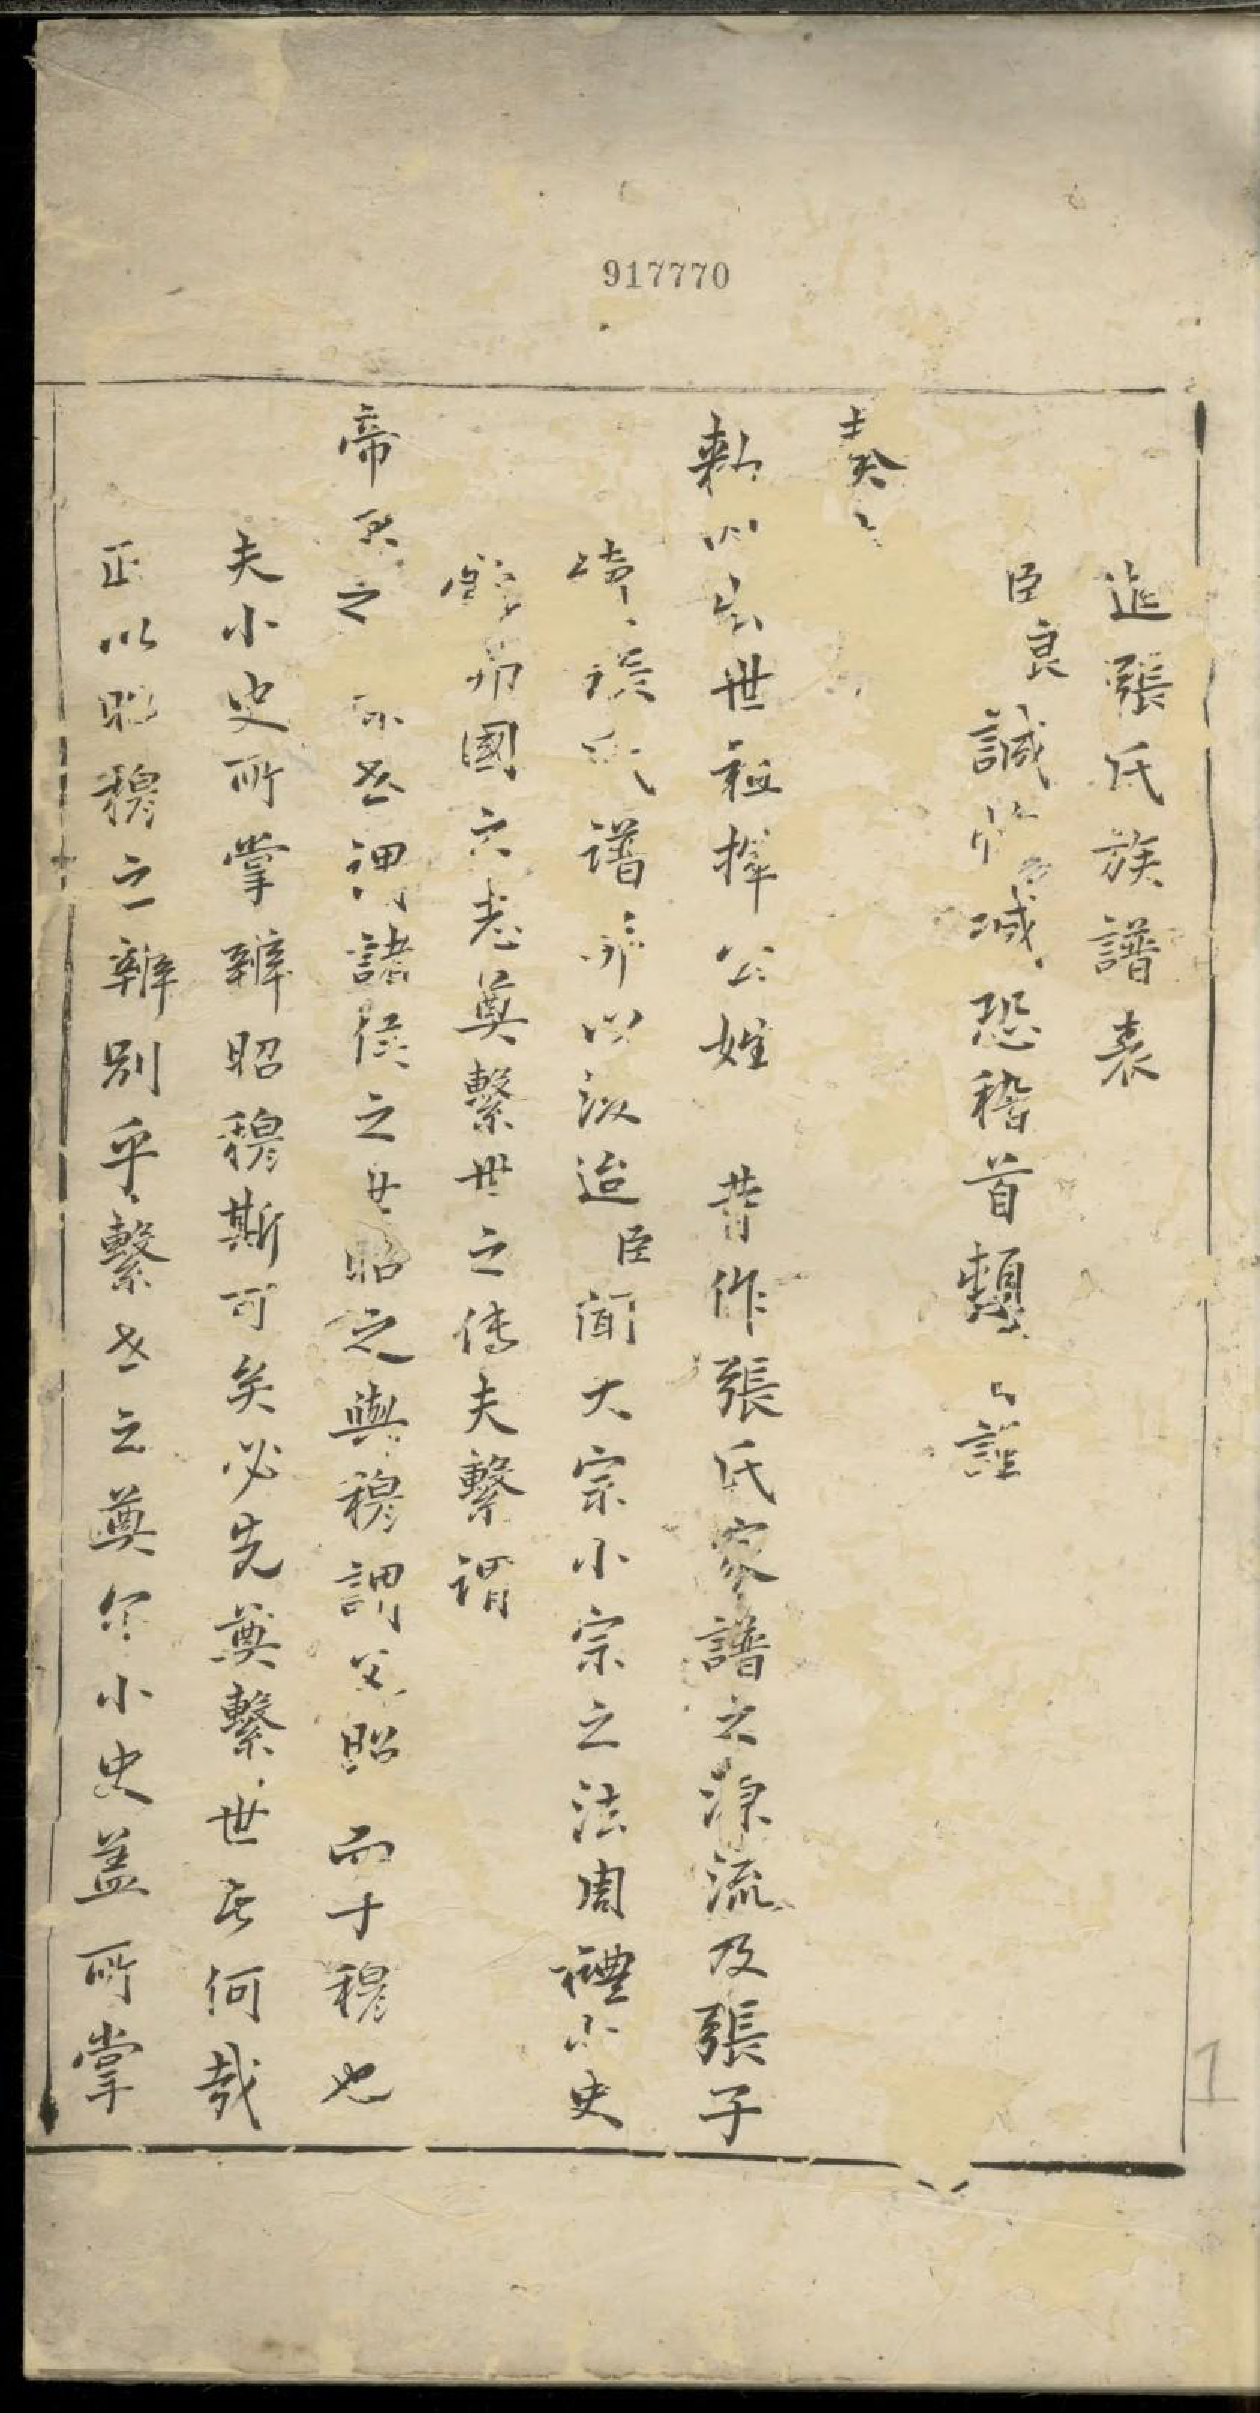 917770
進張氏族譜表
臣良誠惶誠恐稽首頓謹
奏
勅以出世祖揮公姓昔作張氏家譜之源流及張子
族氏譜所以汲迨臣聞大宗小宗之法周禮小史
邦國之志奠繫世之傳夫繫謂
帝之世謂諸侯之世昭之與穆謂父昭而子穆也
夫小史所掌辨昭穆斯可矣必先奠繫世者何哉
正以昭穆之辨別乎繫世之奠尔小史盖所掌
1